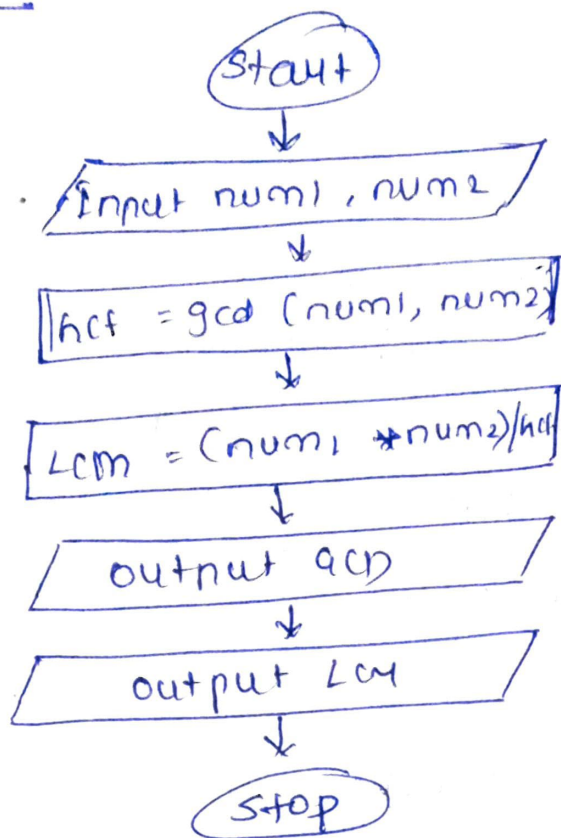 Start
Input num1, num2
hcf = gcd (num1, num2)
LCM = (num1 * num2)/hcf
output GCD
output LCM
Stop